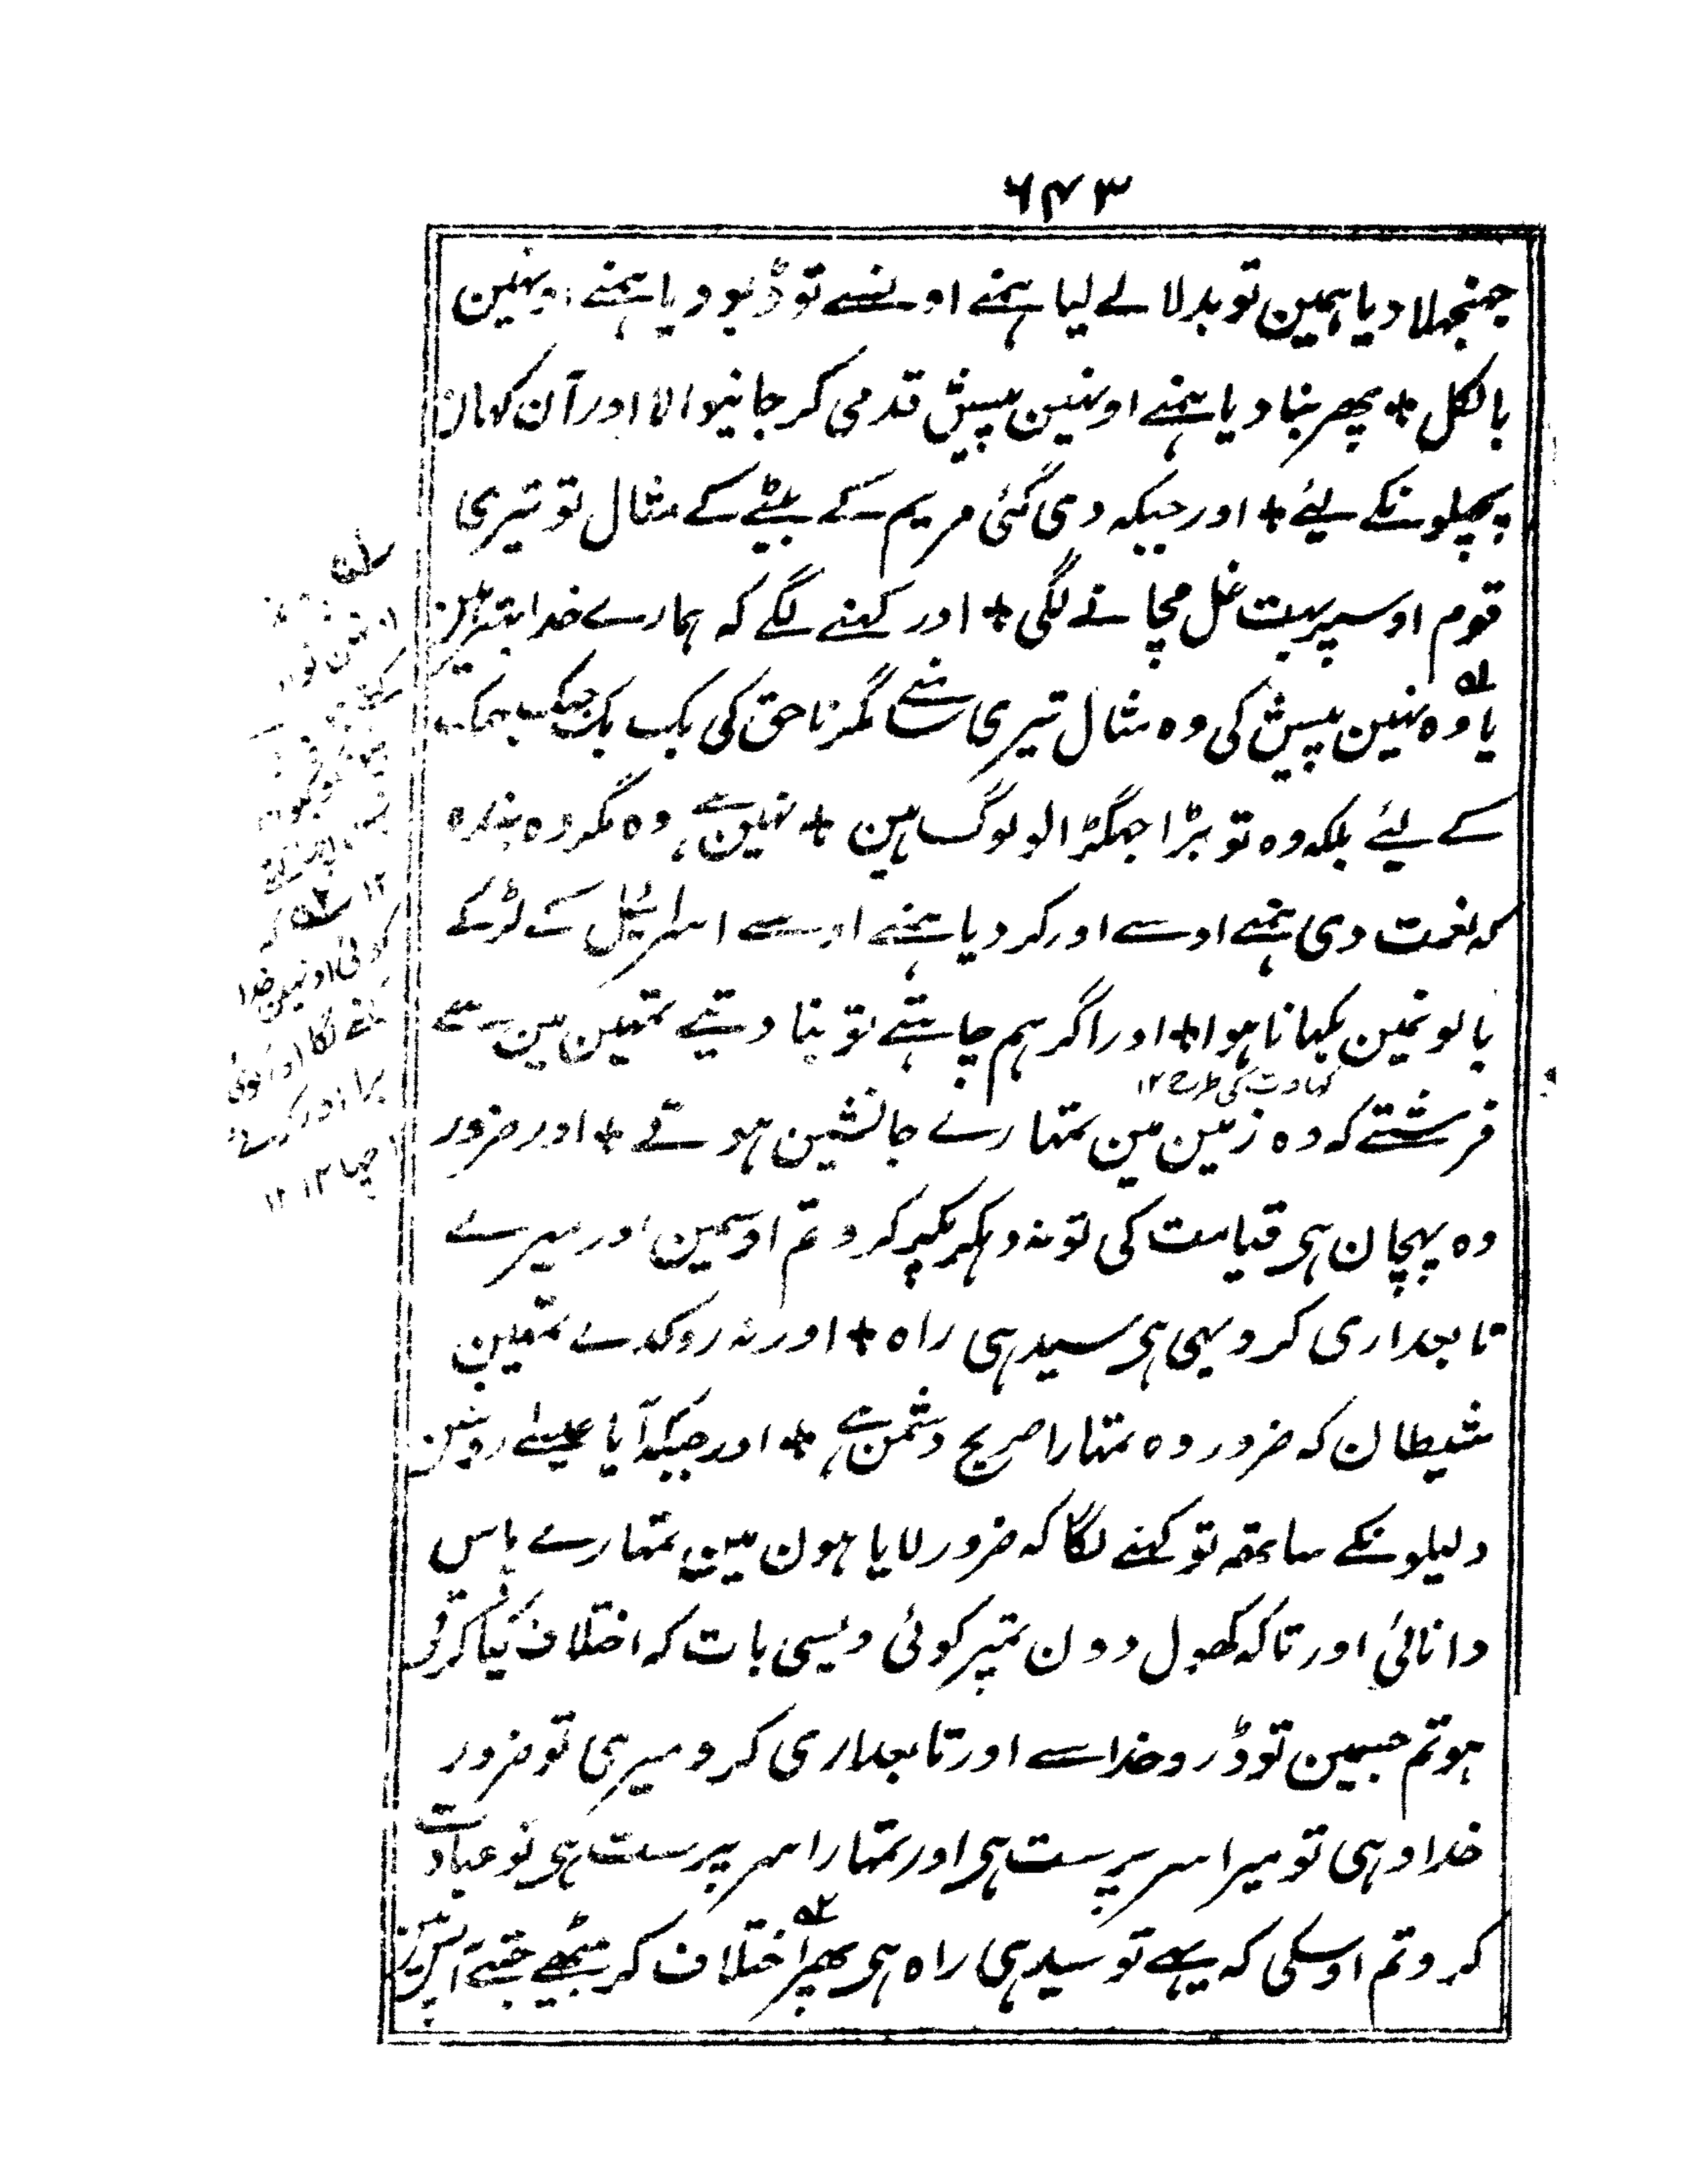 ۶۴۳
جهنجهلا دیا ہمین تو بدلا لے لیا ہمنے اونسے تو ڈبو دیا ہمنے اونہین
بالکل + پھر بنا دیا ہمنے اونہین پیش قدمی کر جانیوالا اور آن کہان
پچھلونکے لئے + اور جبکہ دی گئی مریم کے بیٹے کے مثال تو تیری
قوم اوسپر بہت غل مچانے لگی + اور کہنے لگے کہ ہمارے خدا بہتر ہین
یا وہ نہین پیش کی وہ مثال تیری سامنے مگر ناحق کی بک بک جھک جھک
کے لئے بلکہ وہ تو بڑا جہگڑالو لوگ ہین + نہین ہے وہ مگر وہ بندہ
کہ نعمت دی ہمنے اوسے اور کر دیا ہمنے اوسے اسرائیل کے لڑکے
بالونمین کہانا ہوا + اور اگر ہم چاہتے تو بنا دیتے تمہین مین سے
کہاوت کی طرح ۱۲
فرشتے کہ وہ زمین مین تمہارے جانشین ہوتے + اور ضرور
وہ پہچان ہی قیامت کی تو نہ دہکر پکر کرو تم اوسمین اور میرے
تابعداری کرو یہی ہی سیدہی راہ + اور نہ روکدے تمہین
شیطان کہ ضرور وہ تمہارا صریح دشمن ہے + اور جبکہ آیا عیسٰے روشن
دلیلونکے ساتھہ تو کہنے لگا کہ ضرور لایا ہون مین تمہارے پاس
دانائی اور تاکہ کھول دون تمپر کوئی ویسی بات کہ اختلاف کیا کرتے
ہو تم جسمین تو ڈرو خدا سے اور تابعداری کرو میری تو ضرور
خدا وہی تو میرا سرپرست ہی اور تمہارا سرپرست ہی تو عبادت
کرو تم اوسکی کہ یہے تو سیدہی راہ ہی پھر اختلاف کر بیٹھے جتھے آپس مین
کوئی اونہین خدا
کہنے لگا اور کوئی